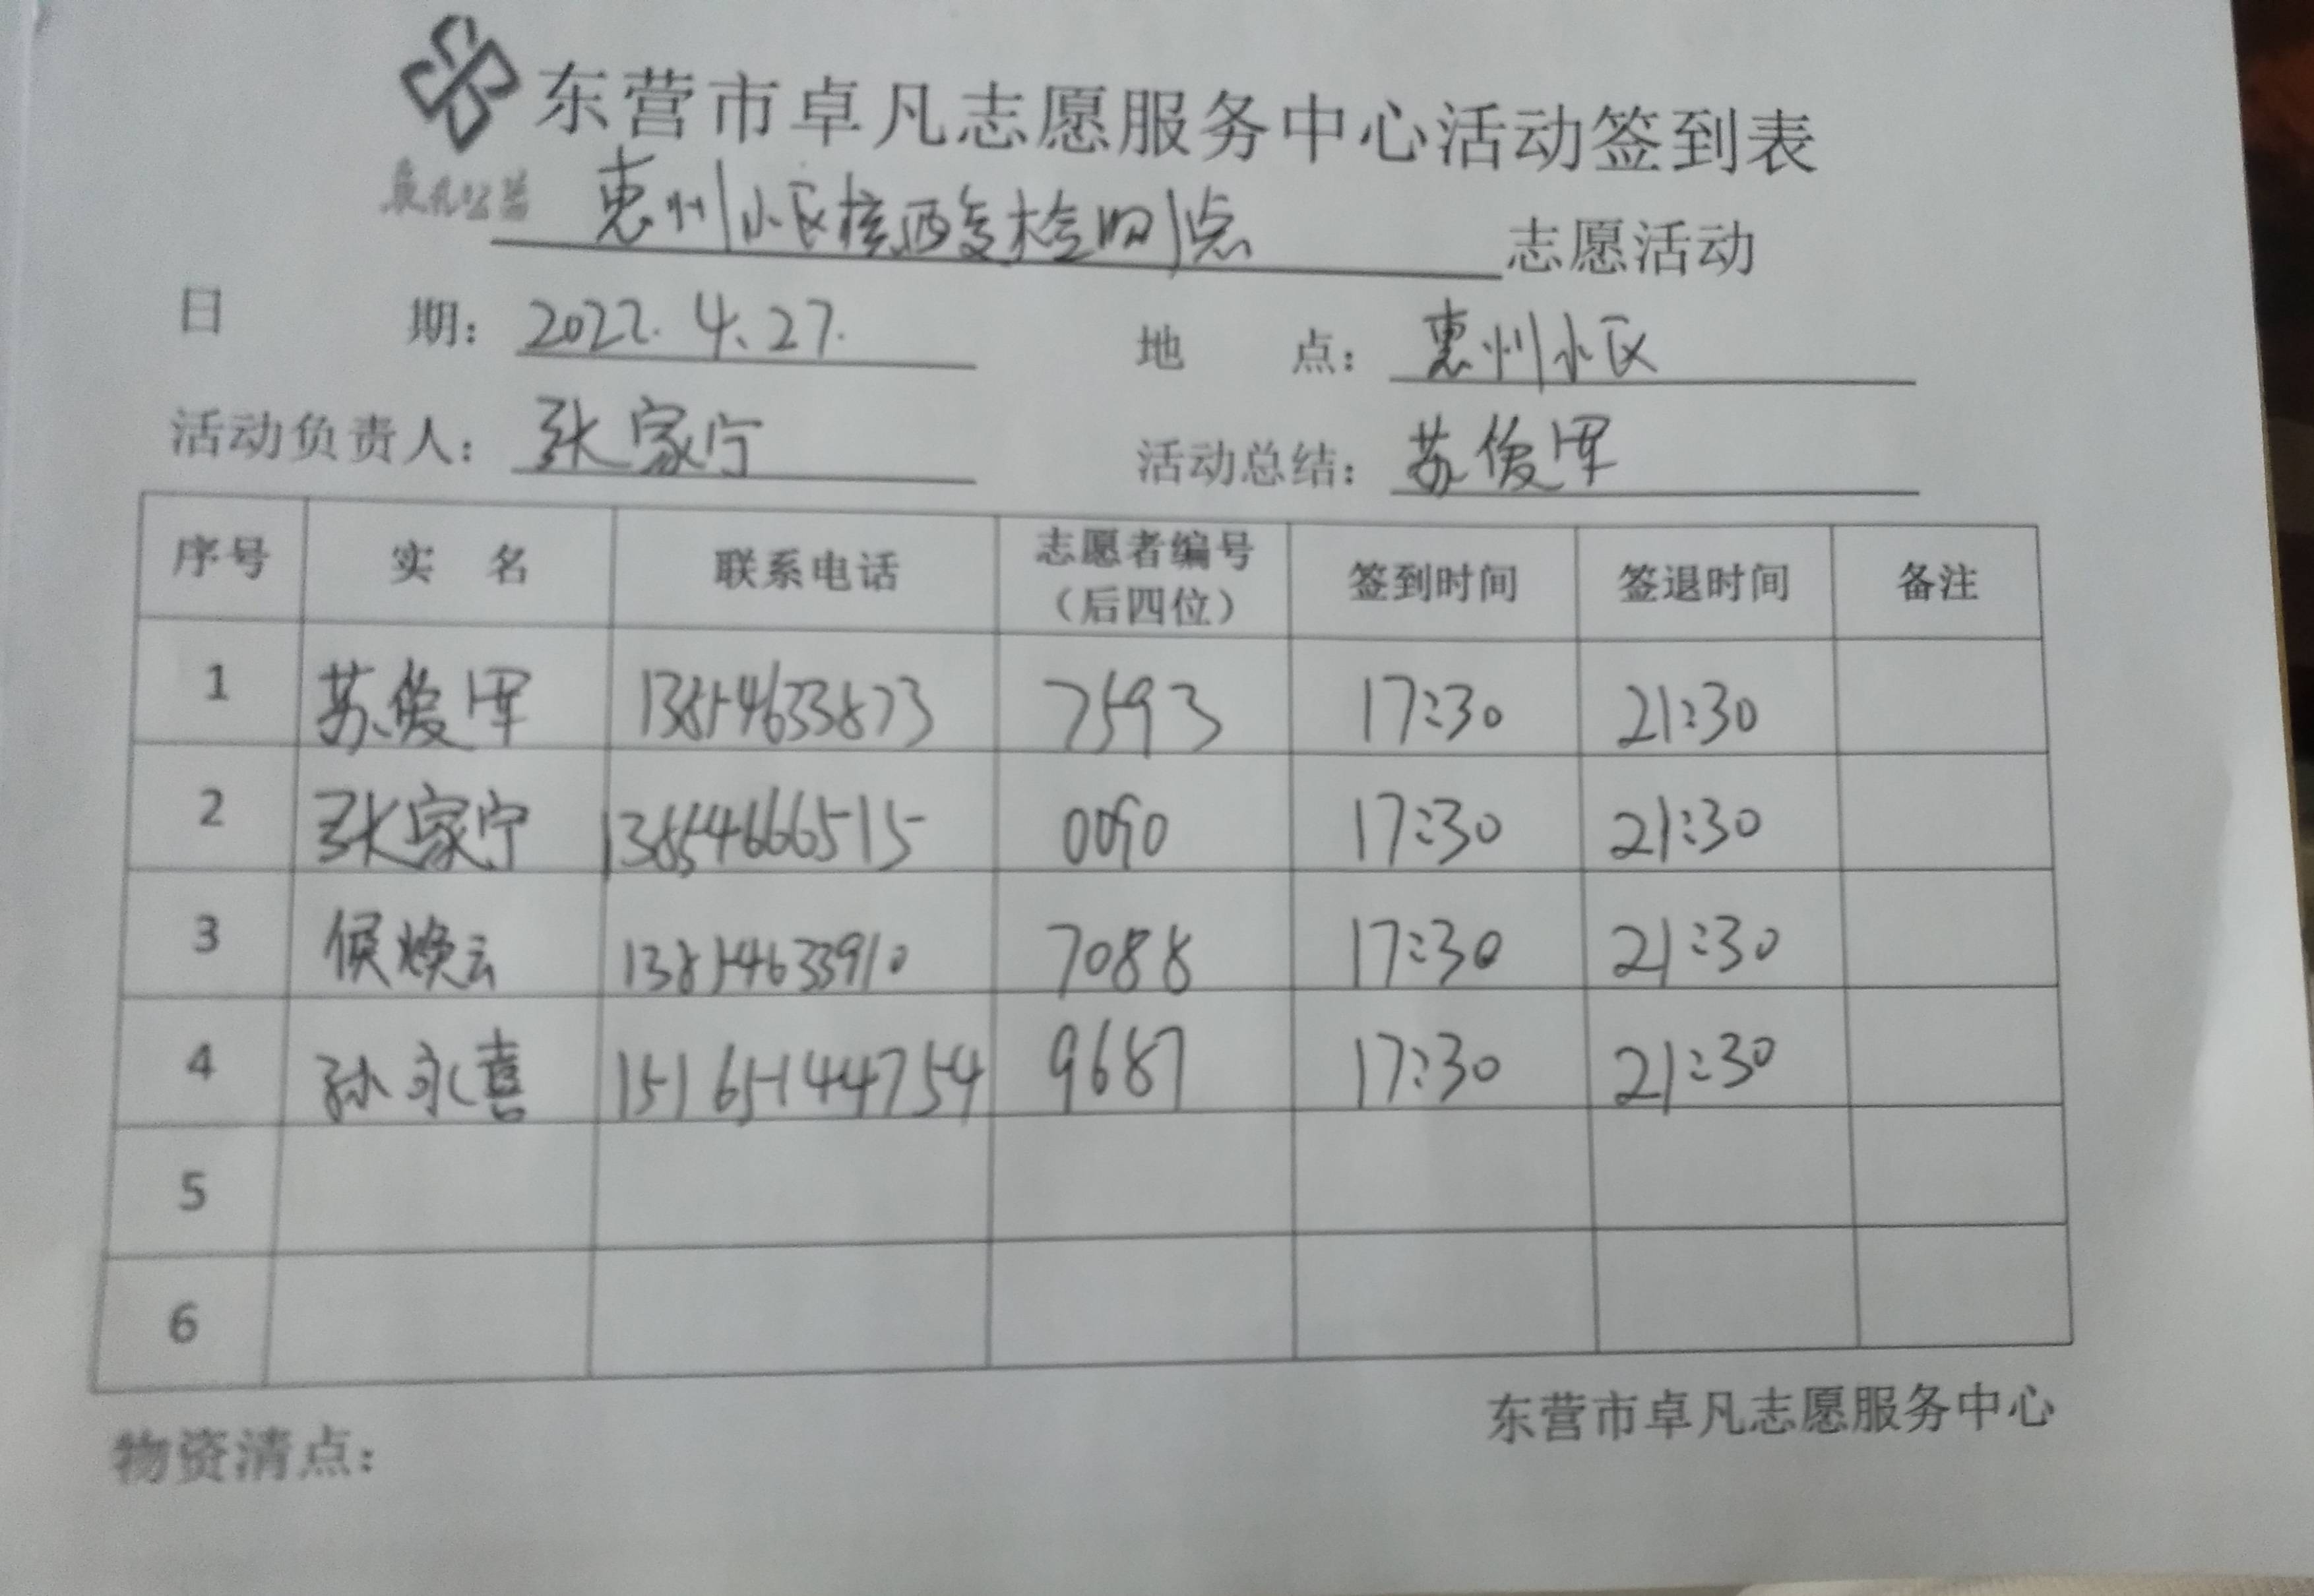 东营市卓凡志愿服务中心活动签到表
卓凡公益
惠州小区核酸检测点 志愿活动
日 期：2022.4.27. 地 点：惠州小区
活动负责人：张家宁 活动总结：苏俊军
序号 实 名 联系电话 志愿者编号（后四位） 签到时间 签退时间 备注
1 苏俊军 13854633873 7593 17:30 21:30
2 张家宁 13854666515 0090 17:30 21:30
3 侯焕云 13854633910 7088 17:30 21:30
4 孙永喜 15165144754 9687 17:30 21:30
5
6
东营市卓凡志愿服务中心
物资清点：